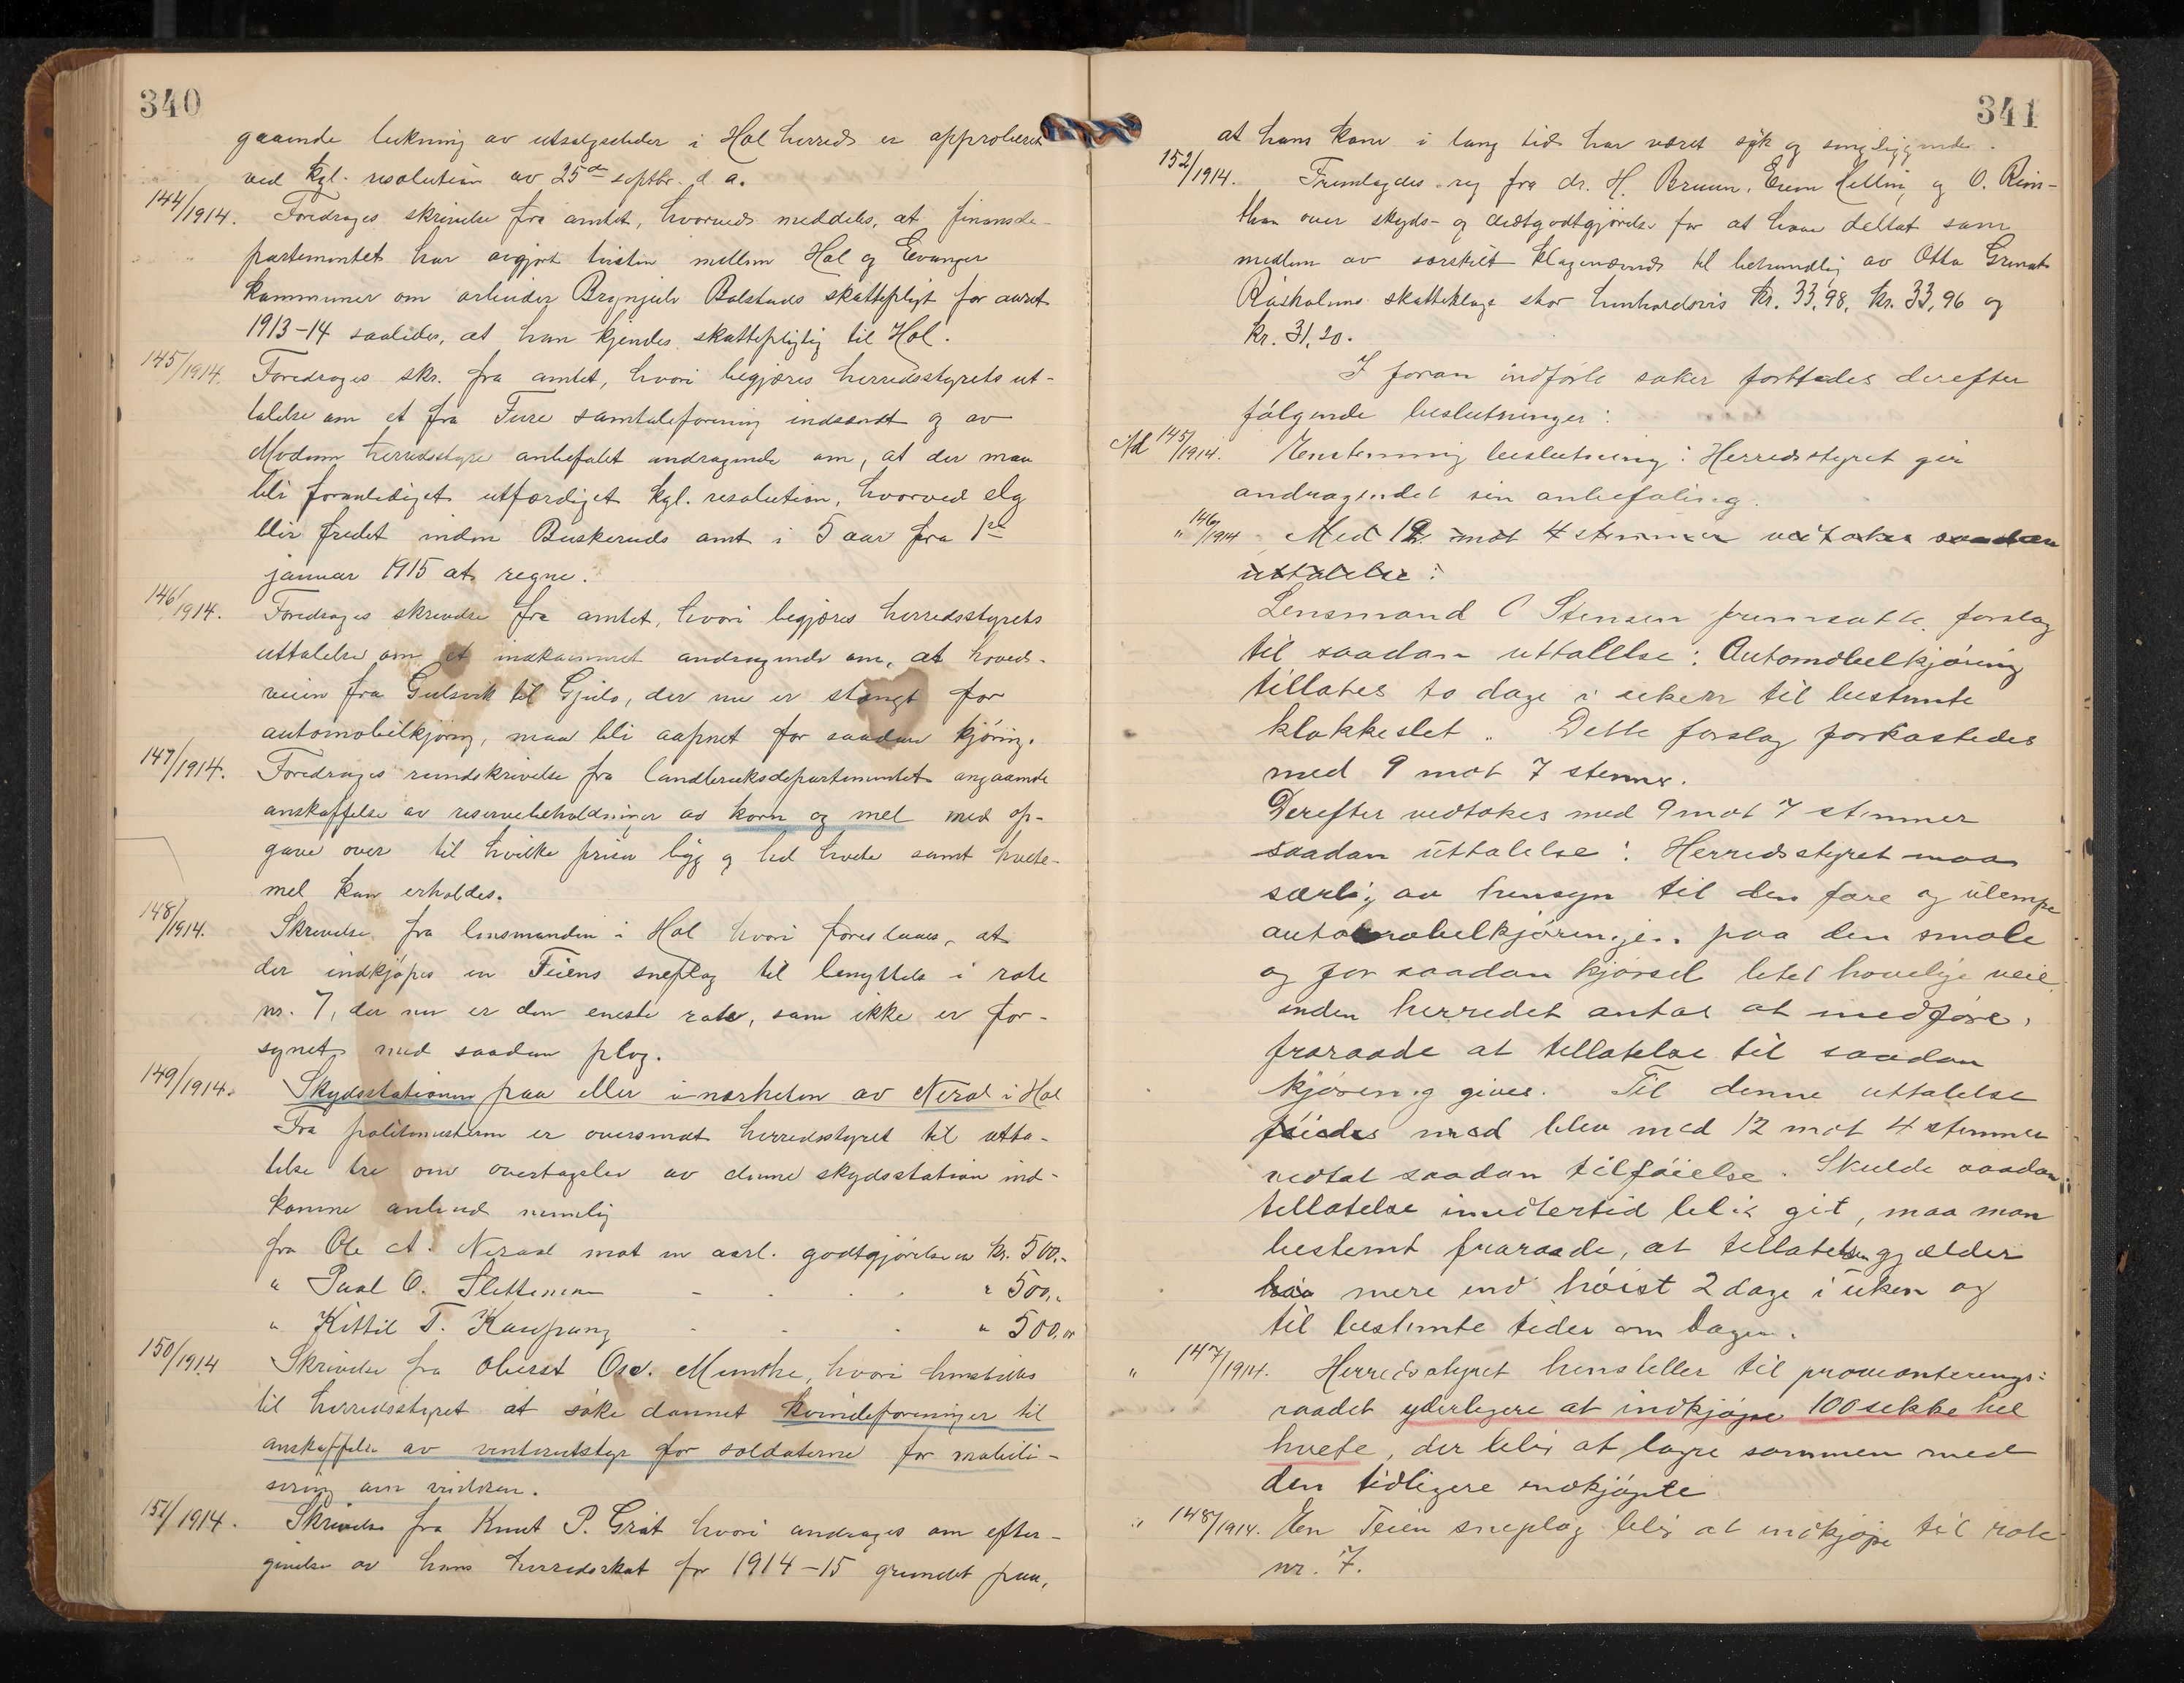 340
gaaende lukning av utsalgssteder i Hol herred er approberet
ved kgl. resolution av 25de septbr. d. a.
144/1914. Foredroges skrivelse fra amtet, hvorved meddeles, at finansde-
partementet har avgjort tvisten mellem Hol og Evanger
kommuner om arbeider Brynjulv Bolstads skattepligt for aaret
1913-14 saaledes, at han kjendes skattepligtig til Hol.
145/1914. Foredroges skr. fra amtet, hvori begjæres herredsstyrets ut-
talelse om et fra Fure samtaleforening indsendt og av
Modum herredsstyre anbefalet andragende om, at der maa
bli foranlediget utfærdiget kgl. resolution, hvorved elg
blir fredet inden Buskeruds amt i 5 aar fra 1ste
januar 1915 at regne.
146/1914. Foredroges skrivelse fra amtet, hvori begjæres herredsstyrets
uttalelse om et indkommet andragende om, at hoved-
veien fra Gulsvik til Gjeilo, der nu er stængt for
automobilkjøring, maa bli aapnet for saadan kjøring.
147/1914. Foredroges rundskrivelse fra landbruksdepartementet angaaende
anskaffelse av reservebeholdninger av korn og mel med op-
gave over til hvilke priser byg og hel hvete samt hvete-
mel kan erholdes.
148/1914. Skrivelse fra lensmanden i Hol hvori foreslaaes, at
der indkjøpes en Feiens sneplog til benyttelse i rote
nr. 7, der nu er den eneste rote, som ikke er for-
synet med saadan plog.
149/1914. Skydsstationen paa eller i nærheten av Neral i Hol
Fra politimesteren er oversendt herredsstyret til utta-
lelse tre om overtagelse av denne skydsstation ind-
komne anbud nemlig
fra Ole A. Neraal mot en aarl. godtgjørelse av kr. 500,-
" Paal O. Slettemoen - - - " 500,-
" Kittil T. Kaupang - - - " 500,00
150/1914 Skrivelse fra oberst Osc. Munthe, hvori henstilles
til herredsstyret at søke dannet kvindeforeninger til
anskaffelse av vinterutstyr for soldaterne for mobili-
sering om vinteren.
151/1914. Skrivelse fra Knut P. Grøt hvori andrages om efter-
givelse av hans herredsskat for 1914-15 grundet paa,
341
at hans kone i lang tid har været syk og sengeliggende.
152/1914. Fremlagdes regn. fra dr. H. Bruun, Even Helling og O. Rein-
ton over skyds- og diætgodtgjørelse for at have deltat som
medlem av særskilt klagenævnd til behandling av Otto
Raaholms skatteklage stor henholdsvis kr. 33,98, kr. 33,96 og
kr. 31,20.
I foran indførte saker fattedes derefter
følgende beslutninger:
Ad 145/1914. Enstemmig beslutning: Herredsstyret gir
andragendet sin anbefaling.
" 146/1914. Med 12 mot 4 stemmer vedtokes saadan
uttalelse:
Lensmand O Stensen fremsatte forslag
til saadan uttallelse: Automobilkjøring
tillates to dage i uken til bestemte
klokkeslet. Dette forslag forkastedes
med 9 mot 7 stemmer.
Derefter vedtokes med 9 mot 7 stemmer
saadan uttalelse: Herredsstyret maa
særlig av hensyn til den fare og ulempe
automobilkjøringen paa den smale
og for saadan kjørsel litet hovelige veie
inden herredet antas at medføre,
fraraade at tillatelse til saadan
kjøring gives. Til denne uttalelse
føiedes med blev med 12 mot 4 stemmer
vedtat saadan tilføielse. Skulde saadan
tillatelse imidlertid bli git, maa man
bestemt fraraade, at tillatelsen gjælder
mere end høist 2 dage i uken og
til bestemte tider om dagen.
" 147/1914. Herredsstyret henstiller til provianterings-
raadet yderligere at indkjøpe 100 sekke hel
hvete, der blir at lagre sammen med
den tidligere indkjøpte
" 148/1914. En Feien sneplog blir at indkjøpe til rote
nr. 7.